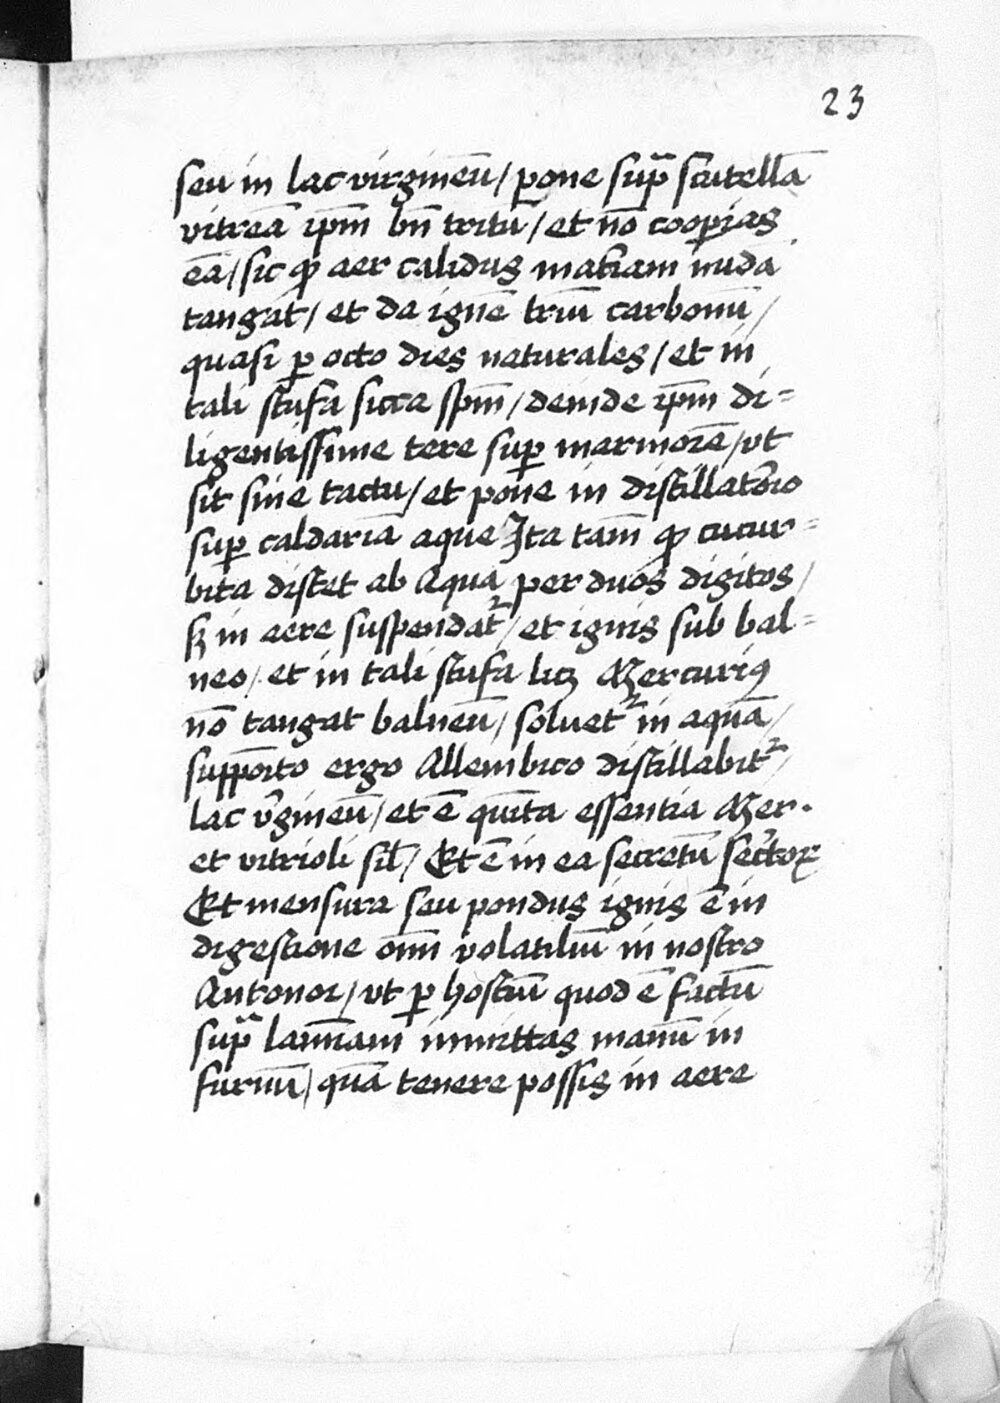 23
seu in lac virgineū / pone sup̄ scutellā
vitreā ip̄m bn̄ tritū / et nō cooꝑias
eā / sic ꝙ aer calidus mat̄iam nudā
tangat / et da ignē triū carbonū /
quasi ꝑ octo dies naturales / et in
tali stufa sicca sp̄m / deinde ip̄m di=
ligentissime tere suꝑ marmorē / vt
sit sine tactu / et pone in distillatorio
suꝑ caldariā aque Ita tam̄ ꝙ cucur=
bita distet ab Aqua per duos digitos /
sꝫ in aere suspendat᷑ / et ignis sub bal=
neo / et in tali stufa licꝫ Mercuriꝰ
nō tangat balneū / soluet᷑ in aquā /
supp̄oito ergo Allembico distillabit᷑ /
lac v̓gineū / et ē quīta essentia Mer.
et vitrioli sil̄ / Et ē in ea secretū secr̄toꝝ
Et mensura seu pondus ignis ē in
digestione om̄ volatiliū in nostro
Antonor / vt ꝑ hostiū quod ē factū
sup̄ lam̄am inmittas manū in
furnū / quā tenere possis in aere